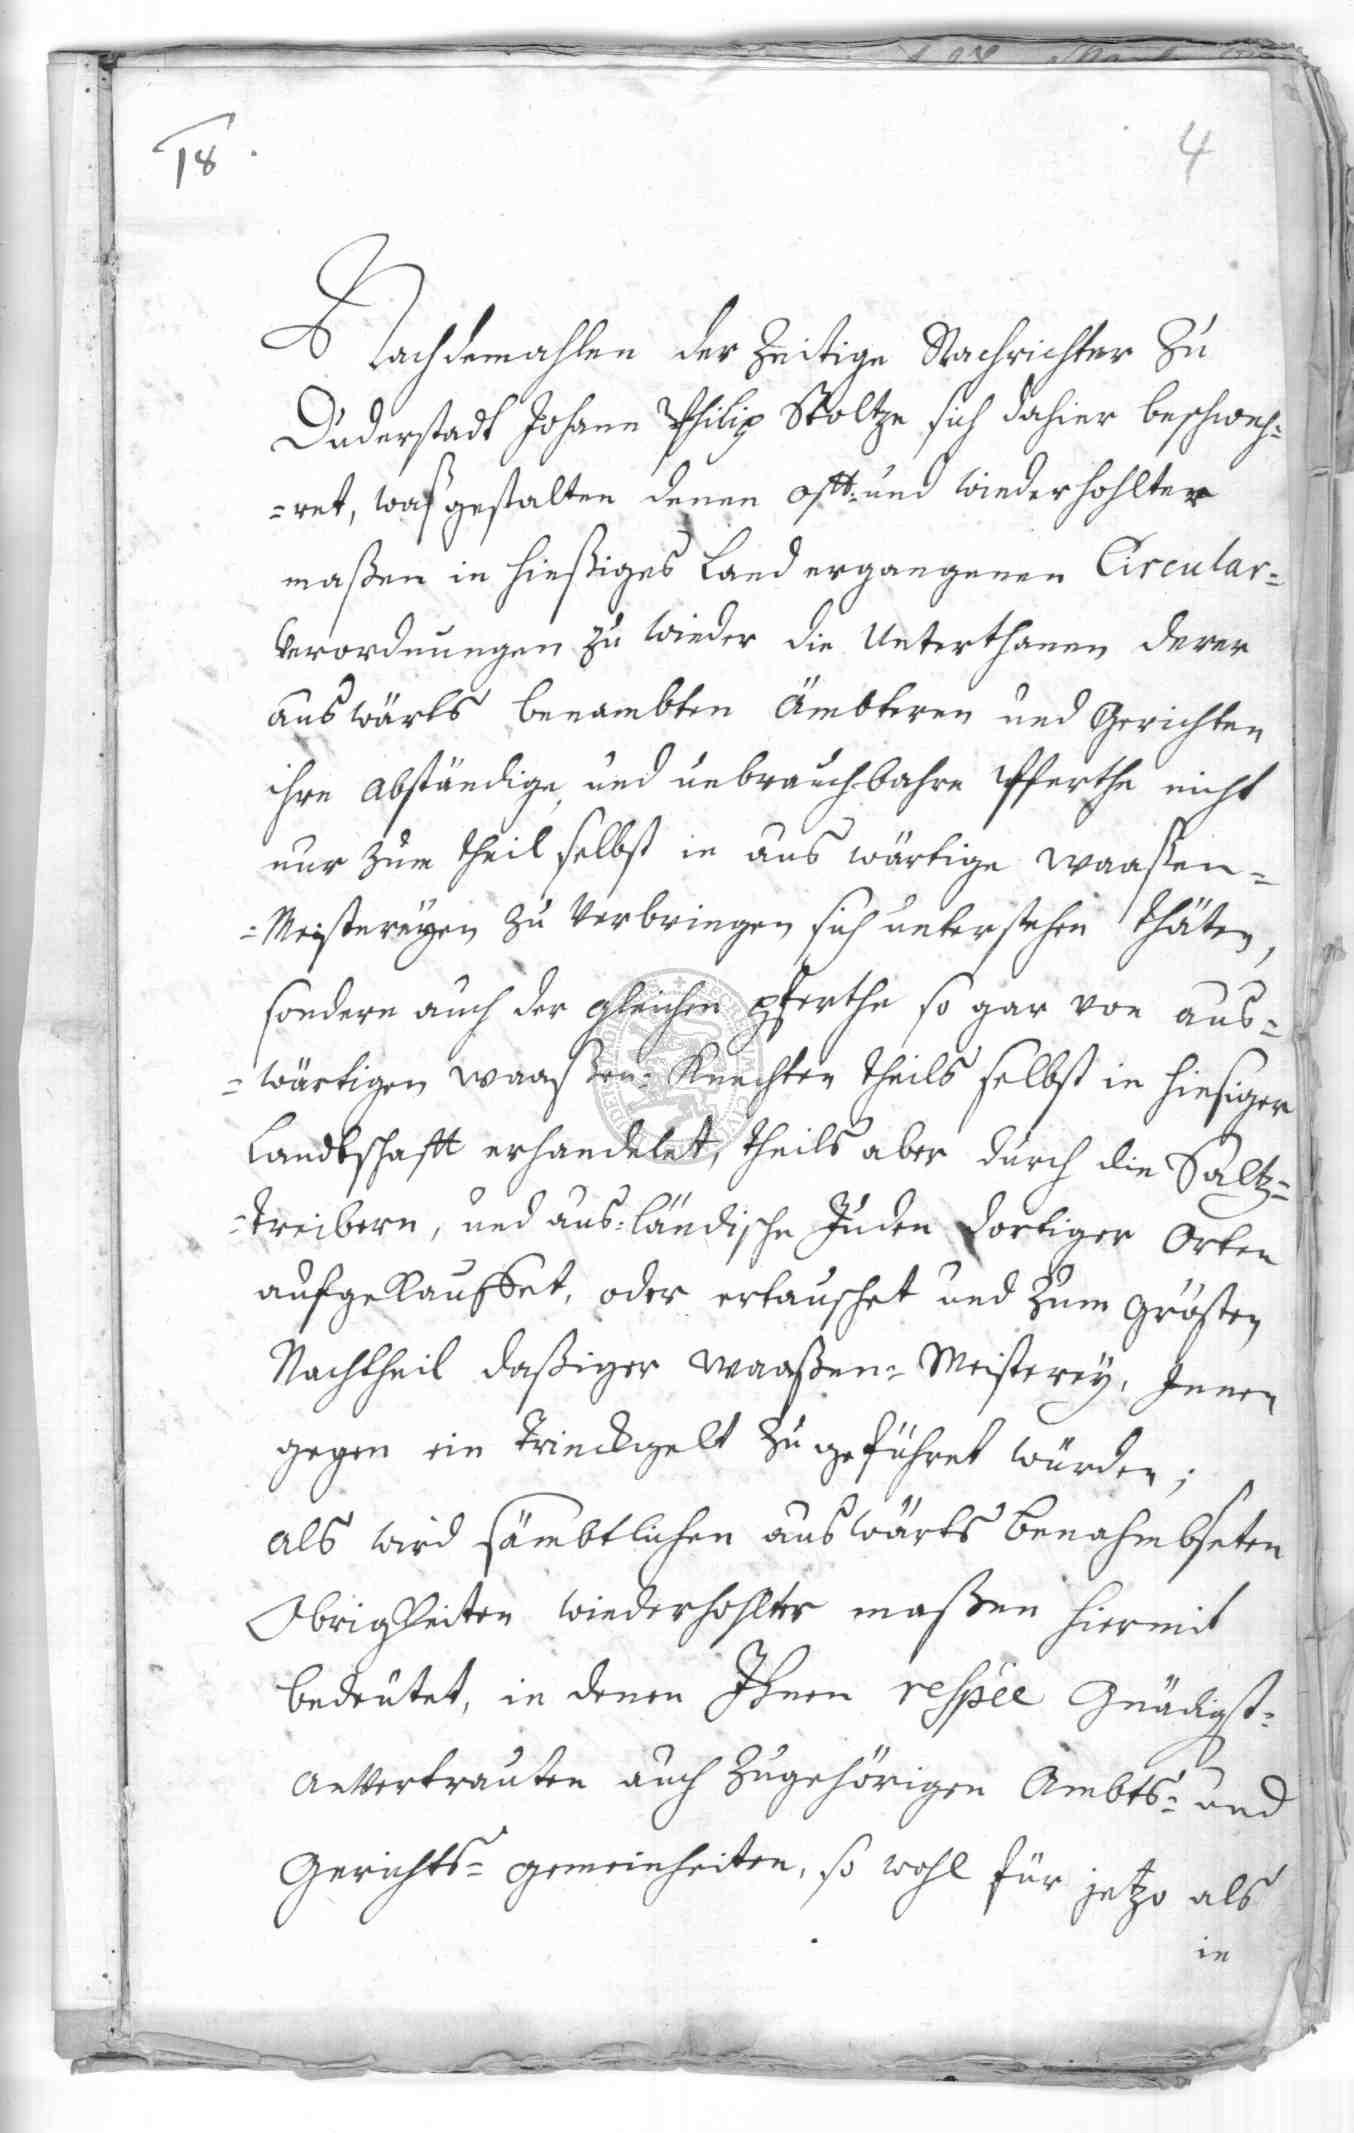 18.
4
Nachdemahlen der Zeitige Nachrichter Zu
Duderstadt Johann Philip Stoltze sich dahier beschweh=
=ret, waß gestalten denen offt= und wiederhohlter
maßen in hießiges Land ergangenen Circular=
Verordnungen zu wieder die Unterthanen derer
auswärts benambten Ämbteren und Gerichten
ihre abständige, und unbrauchbahre Pferthe nicht
nur zum theil selbst in aus wärtige waasen=
=Meistereyen zu verbringen sich unterstehen thäten,
sondern auch der gleichen pferthe so gar von aus=
=wärtigen waaßen= Knechten theils selbst in hiesiger
Landtschafft erhandelet, theils aber durch die Saltz=
=treibern, und aus=ländische Juden dortiger Orten
aufgekauffet, oder ertauschet und zum grösten
Nachtheil daßiger waaßen= Meisterey, Jenen
gegen ein Trinckgelt zu geführet würden;
als wird sämbtlichen auswärts benahmbseten
Obrigkeiten wiederhohlter maßen hiermit
bedeutet, in denen Ihnen respée Gnädigst=
anvertrauten auch zugehörigen Ambts= und
Gerichts= gemeinheiten, so wohl für jetzo als
in